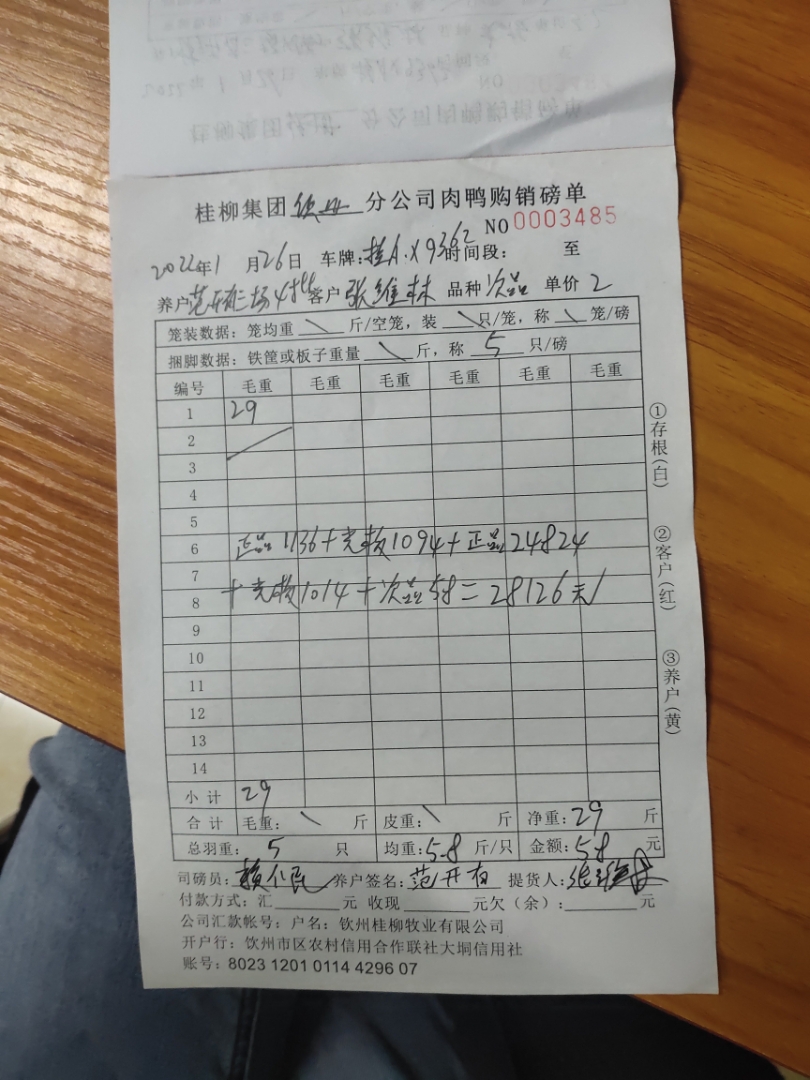 桂柳集团钦州分公司肉鸭购销磅单
NO 0003485
2022年1月26日 车牌:桂A·X9362 时间段: 至
养户 范开有二场4批 客户 张维林 品种 次品 单价 2
笼装数据:笼均重 \ 斤/空笼,装 \ 只/笼,称 \ 笼/磅
捆脚数据:铁筐或板子重量 \ 斤,称 5 只/磅
编号 毛重 毛重 毛重 毛重 毛重 毛重
1 29
2
3
4
5
6 正品1136+壳款1094+正品24824
7
8 +壳款1014+次品58=28126元
9
10
11
12
13
14
小计 29
合计 毛重: \ 斤 皮重: \ 斤 净重:29 斤
总羽重: 5 只 均重:5.8 斤/只 金额:58 元
司磅员:赖仁民 养户签名:范开有 提货人:张维林
付款方式:汇 元 收现 元欠(余): 元
公司汇款帐号:户名:钦州桂柳牧业有限公司
开户行:钦州市区农村信用合作联社大垌信用社
账号:8023 1201 0114 4296 07
①存根(白)
②客户(红)
③养户(黄)